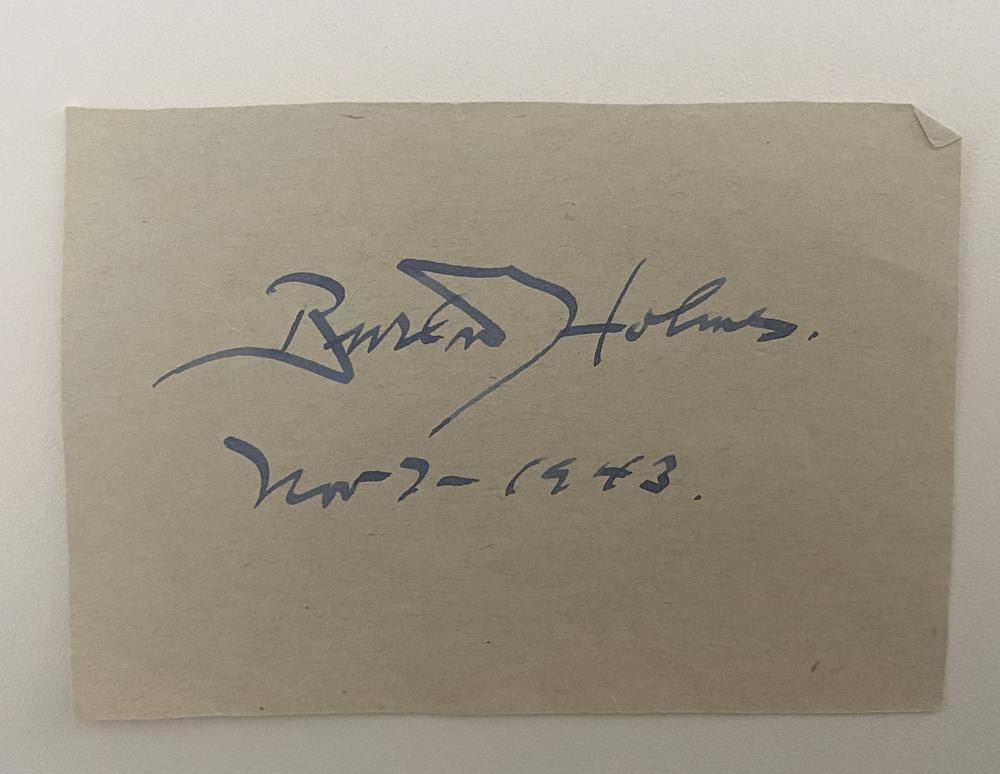 Burton Holmes.
Nov 7 - 1943.